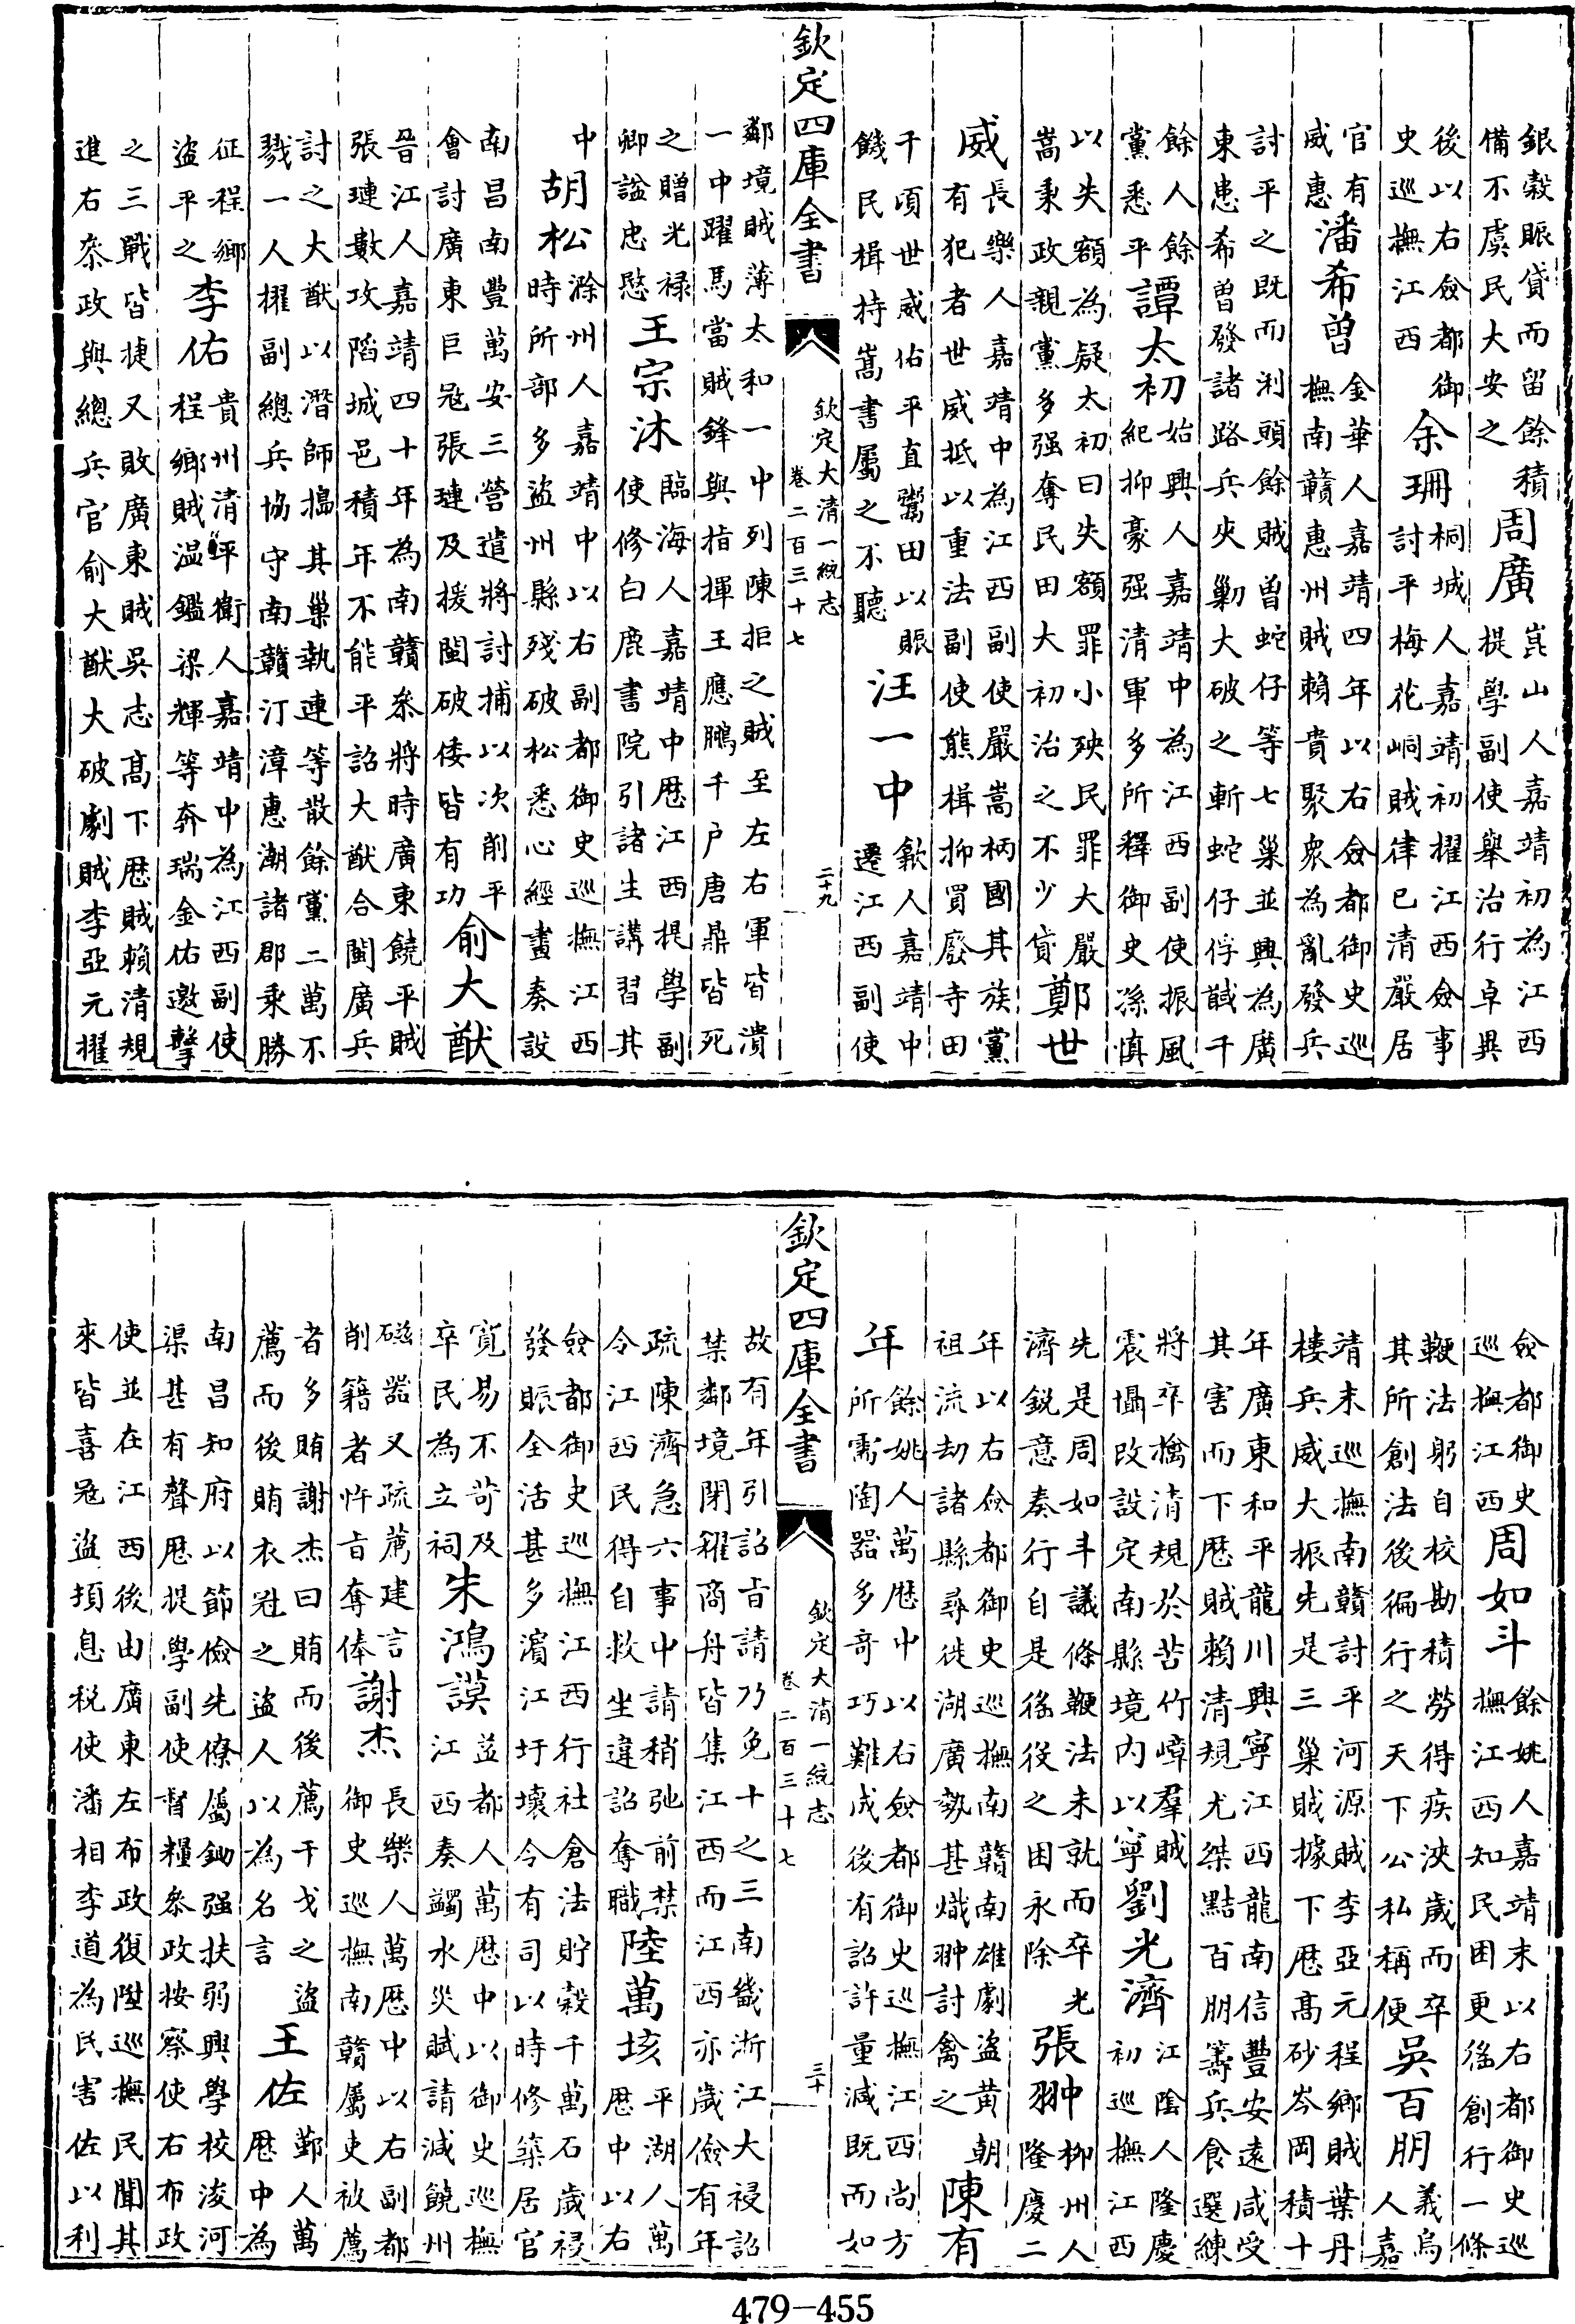 銀穀賑貸而留餘積
備不虞民大安之
周廣
崑山人嘉靖初為江西
提學副使舉治行卓異
後以右僉都御
史巡撫江西
余珊
桐城人嘉靖初擢江西僉事
討平梅花峒賊律已清嚴居
官有
威惠
潘希曾
金華人嘉靖四年以右僉都御史巡
撫南贛惠州賊賴貴聚衆為亂發兵
討平之既而浰頭餘賊曾蛇仔等七巢並興為廣
東患希曾發諸路兵夾勦大破之斬蛇仔俘馘千
餘人餘
黨悉平
譚太初
始興人嘉靖中為江西副使振風
紀抑豪强清軍多所釋御史孫慎
以失額為疑太初曰失額罪小殃民罪大嚴
嵩秉政親黨多强奪民田大初治之不少貸
鄭世
威
長樂人嘉靖中為江西副使嚴嵩柄國其族黨
有犯者世威抵以重法副使熊楫抑買廢寺田
千頃世威佑平直鬻田以賑
饑民楫持嵩書屬之不聽
汪一中
歙人嘉靖中
遷江西副使
欽定四庫全書
欽定大清一統志
卷二百三十七
二十九
鄰境賊薄太和一中列陳拒之賊至左右軍皆潰
一中躍馬當賊鋒與指揮王應鵬千户唐鼎皆死
之贈光禄
卿諡忠愍
王宗沐
臨海人嘉靖中歴江西提學副
使修白鹿書院引諸生講習其
中
胡松
滁州人嘉靖中以右副都御史巡撫江西
時所部多盜州縣殘破松悉心經畫奏設
南昌南豐萬安三營遣將討捕以次削平
會討廣東巨冦張璉及援閩破倭皆有功
俞大猷
晉江人嘉靖四十年為南贛叅將時廣東饒平賊
張璉數攻陷城邑積年不能平詔大猷合閩廣兵
討之大猷以潛師擣其巢執連等散餘黨二萬不
戮一人擢副總兵協守南贛汀漳惠潮諸郡乘勝
征程鄉
盜平之
李佑
貴州清平衛人嘉靖中為江西副使
程鄉賊溫鑑梁輝等奔瑞金佑邀擊
之三戰皆捷又敗廣東賊吳志髙下歴賊賴清規
進右叅政與總兵官俞大猷大破劇賊李亞元擢
僉都御史
巡撫江西
周如斗
餘姚人嘉靖末以右都御史巡
撫江西知民困更徭創行一條
鞭法躬自校勘積勞得疾浹歲而卒
其所創法後徧行之天下公私稱便
吳百朋
義烏
人嘉
靖末巡撫南贛討平河源賊李亞元程鄉賊葉丹
樓兵威大振先是三巢賊據下歴髙砂岑岡積十
年廣東和平龍川興寧江西龍南信豐安遠咸受
其害而下歴賊賴清規尤桀黠百朋籌兵食選練
將卒擒清規於苦竹嶂羣賊
震懾改設定南縣境内以寧
劉光濟
江隂人隆慶
初巡撫江西
先是周如斗議條鞭法未就而卒光
濟鋭意奏行自是徭役之困永除
張翀
柳州人
隆慶二
年以右僉都御史巡撫南贛南雄劇盜黄朝
祖流劫諸縣尋徙湖廣勢甚熾翀討禽之
陳有
年
餘姚人萬歴中以右僉都御史巡撫江西尚方
所需陶器多竒巧難成後有詔許量減既而如
欽定四庫全書
欽定大清一統志
卷二百三十七
三十
故有年引詔㫖請乃免十之三南畿浙江大祲詔
禁鄰境閉糴商舟皆集江西而江西亦歲儉有年
疏陳濟急六事中請稍弛前禁
令江西民得自救坐違詔奪職
陸萬垓
平湖人萬
歴中以右
僉都御史巡撫江西行社倉法貯穀千萬石歲祲
發賑全活甚多濵江圩壞令有司以時修築居官
寛易不苛及
卒民為立祠
朱鴻謨
益都人萬歴中以御史巡撫
江西奏蠲水災賦請減饒州
磁器又疏薦建言
削籍者忤㫖奪俸
謝杰
長樂人萬歴中以右副都
御史巡撫南贛屬吏被薦
者多賄謝杰曰賄而後薦干戈之盜
薦而後賄衣冠之盜人以為名言
王佐
鄞人萬
歴中為
南昌知府以節儉先僚屬鋤强扶弱興學校浚河
渠甚有聲歴提學副使督糧叅政按察使右布政
使並在江西後由廣東左布政復陞巡撫民聞其
來皆喜冦盜頓息税使潘相李道為民害佐以利
479-455